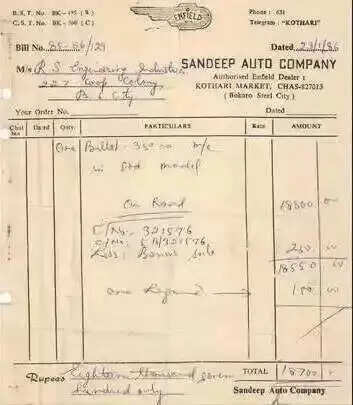 B. S. T. No. BK-195 ( R )
C. S. T. No. BK-500 ( C )
ENFIELD
Phone : 631
Telegram : "KOTHARI"
Bill No. 85-86/129
Dated 23/1/86
M/s R. S. Engineering
SANDEEP AUTO COMPANY
227 Coop Colony
Authorised Enfield Dealer :
KOTHARI MARKET, CHAS-827013
B. S. City
( Bokaro Steel City )
Your Order No.
Dated
Chal No Dated Qnty. PARTICULARS Rate AMOUNT
One Bullet 350 cc m/c
Std model
On Road 18300 00
E/No. 321576
C/No. 5B/321576 250 00
Less: 18550 00
150 00
Rupees Eighteen thousand seven TOTAL 18700
hundred only Sandeep Auto Company